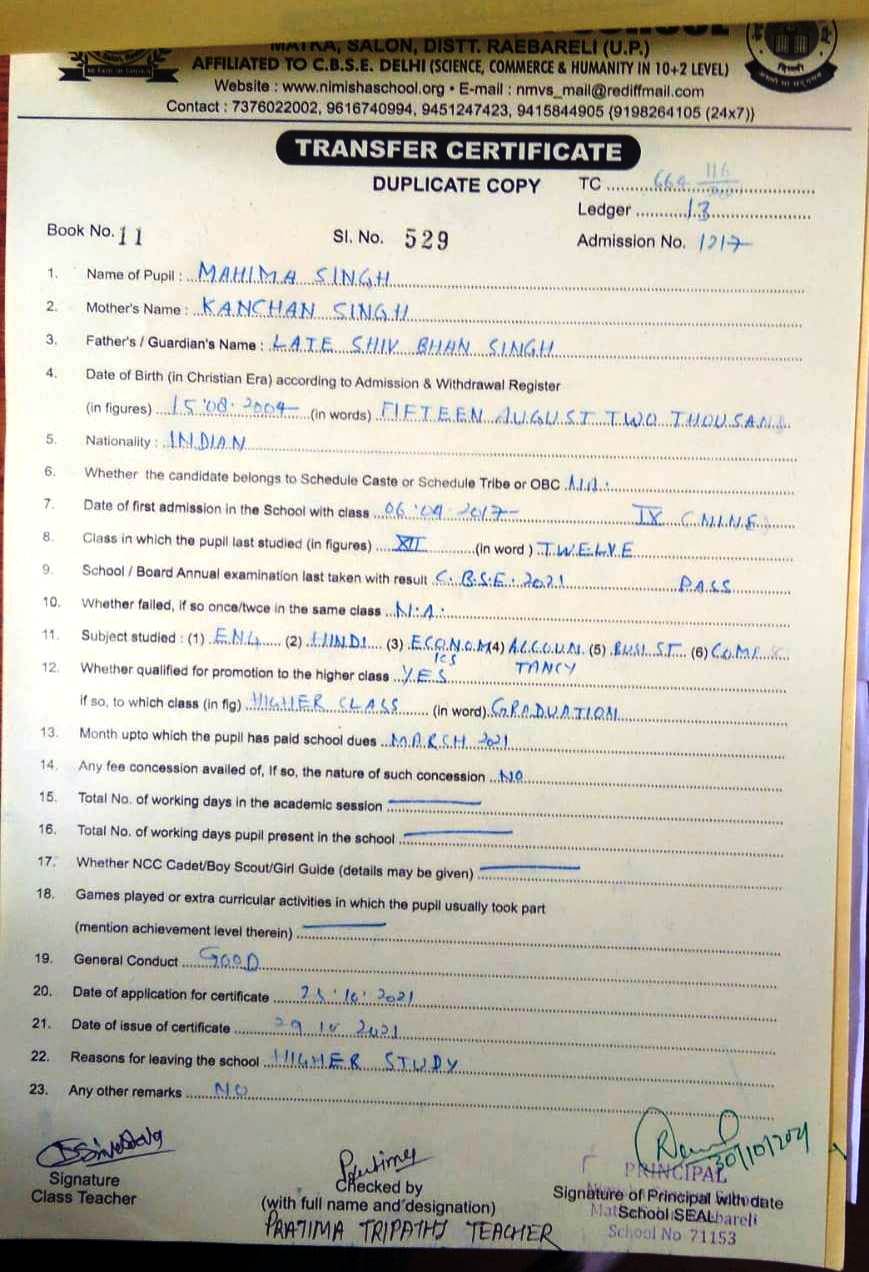 MATKA, SALON, DISTT. RAEBARELI (U.P.)
AFFILIATED TO C.B.S.E. DELHI (SCIENCE, COMMERCE & HUMANITY IN 10+2 LEVEL)
Website : www.nimishaschool.org • E-mail : nmvs_mail@rediffmail.com
Contact : 7376022002, 9616740994, 9451247423, 9415844905 {9198264105 (24x7)}
TRANSFER CERTIFICATE
DUPLICATE COPY TC 664 116
Ledger 13
Book No. 11 Sl. No. 529 Admission No. 1217
1. Name of Pupil : MAHIMA SINGH
2. Mother's Name : KANCHAN SINGH
3. Father's / Guardian's Name : LATE SHIV BHAN SINGH
4. Date of Birth (in Christian Era) according to Admission & Withdrawal Register
(in figures) 15.08.2004 (in words) FIFTEEN AUGUST TWO THOUSAND
5. Nationality : INDIAN
6. Whether the candidate belongs to Schedule Caste or Schedule Tribe or OBC N.A.
7. Date of first admission in the School with class 06.09.2017 IX (NINE)
8. Class in which the pupil last studied (in figures) XII (in word ) TWELVE
9. School / Board Annual examination last taken with result C.B.S.E. 2021 PASS
10. Whether failed, if so once/twce in the same class N.A.
11. Subject studied : (1) ENG (2) HINDI (3) ECONOM (4) ACCOUN. (5) BUSI ST (6) COM
ICS TANCY
12. Whether qualified for promotion to the higher class YES
if so, to which class (in fig) HIGHER CLASS (in word) GRADUATION
13. Month upto which the pupil has paid school dues MARCH 2021
14. Any fee concession availed of, If so, the nature of such concession NO
15. Total No. of working days in the academic session
16. Total No. of working days pupil present in the school
17. Whether NCC Cadet/Boy Scout/Girl Guide (details may be given)
18. Games played or extra curricular activities in which the pupil usually took part
(mention achievement level therein)
19. General Conduct GOOD
20. Date of application for certificate 25.10.2021
21. Date of issue of certificate 29 10 2021
22. Reasons for leaving the school HIGHER STUDY
23. Any other remarks NO
30/10/2021
PRINCIPAL
Signature Checked by Signature of Principal with date
Class Teacher (with full name and designation) School SEAL
PRATIMA TRIPATHI TEACHER School No 71153